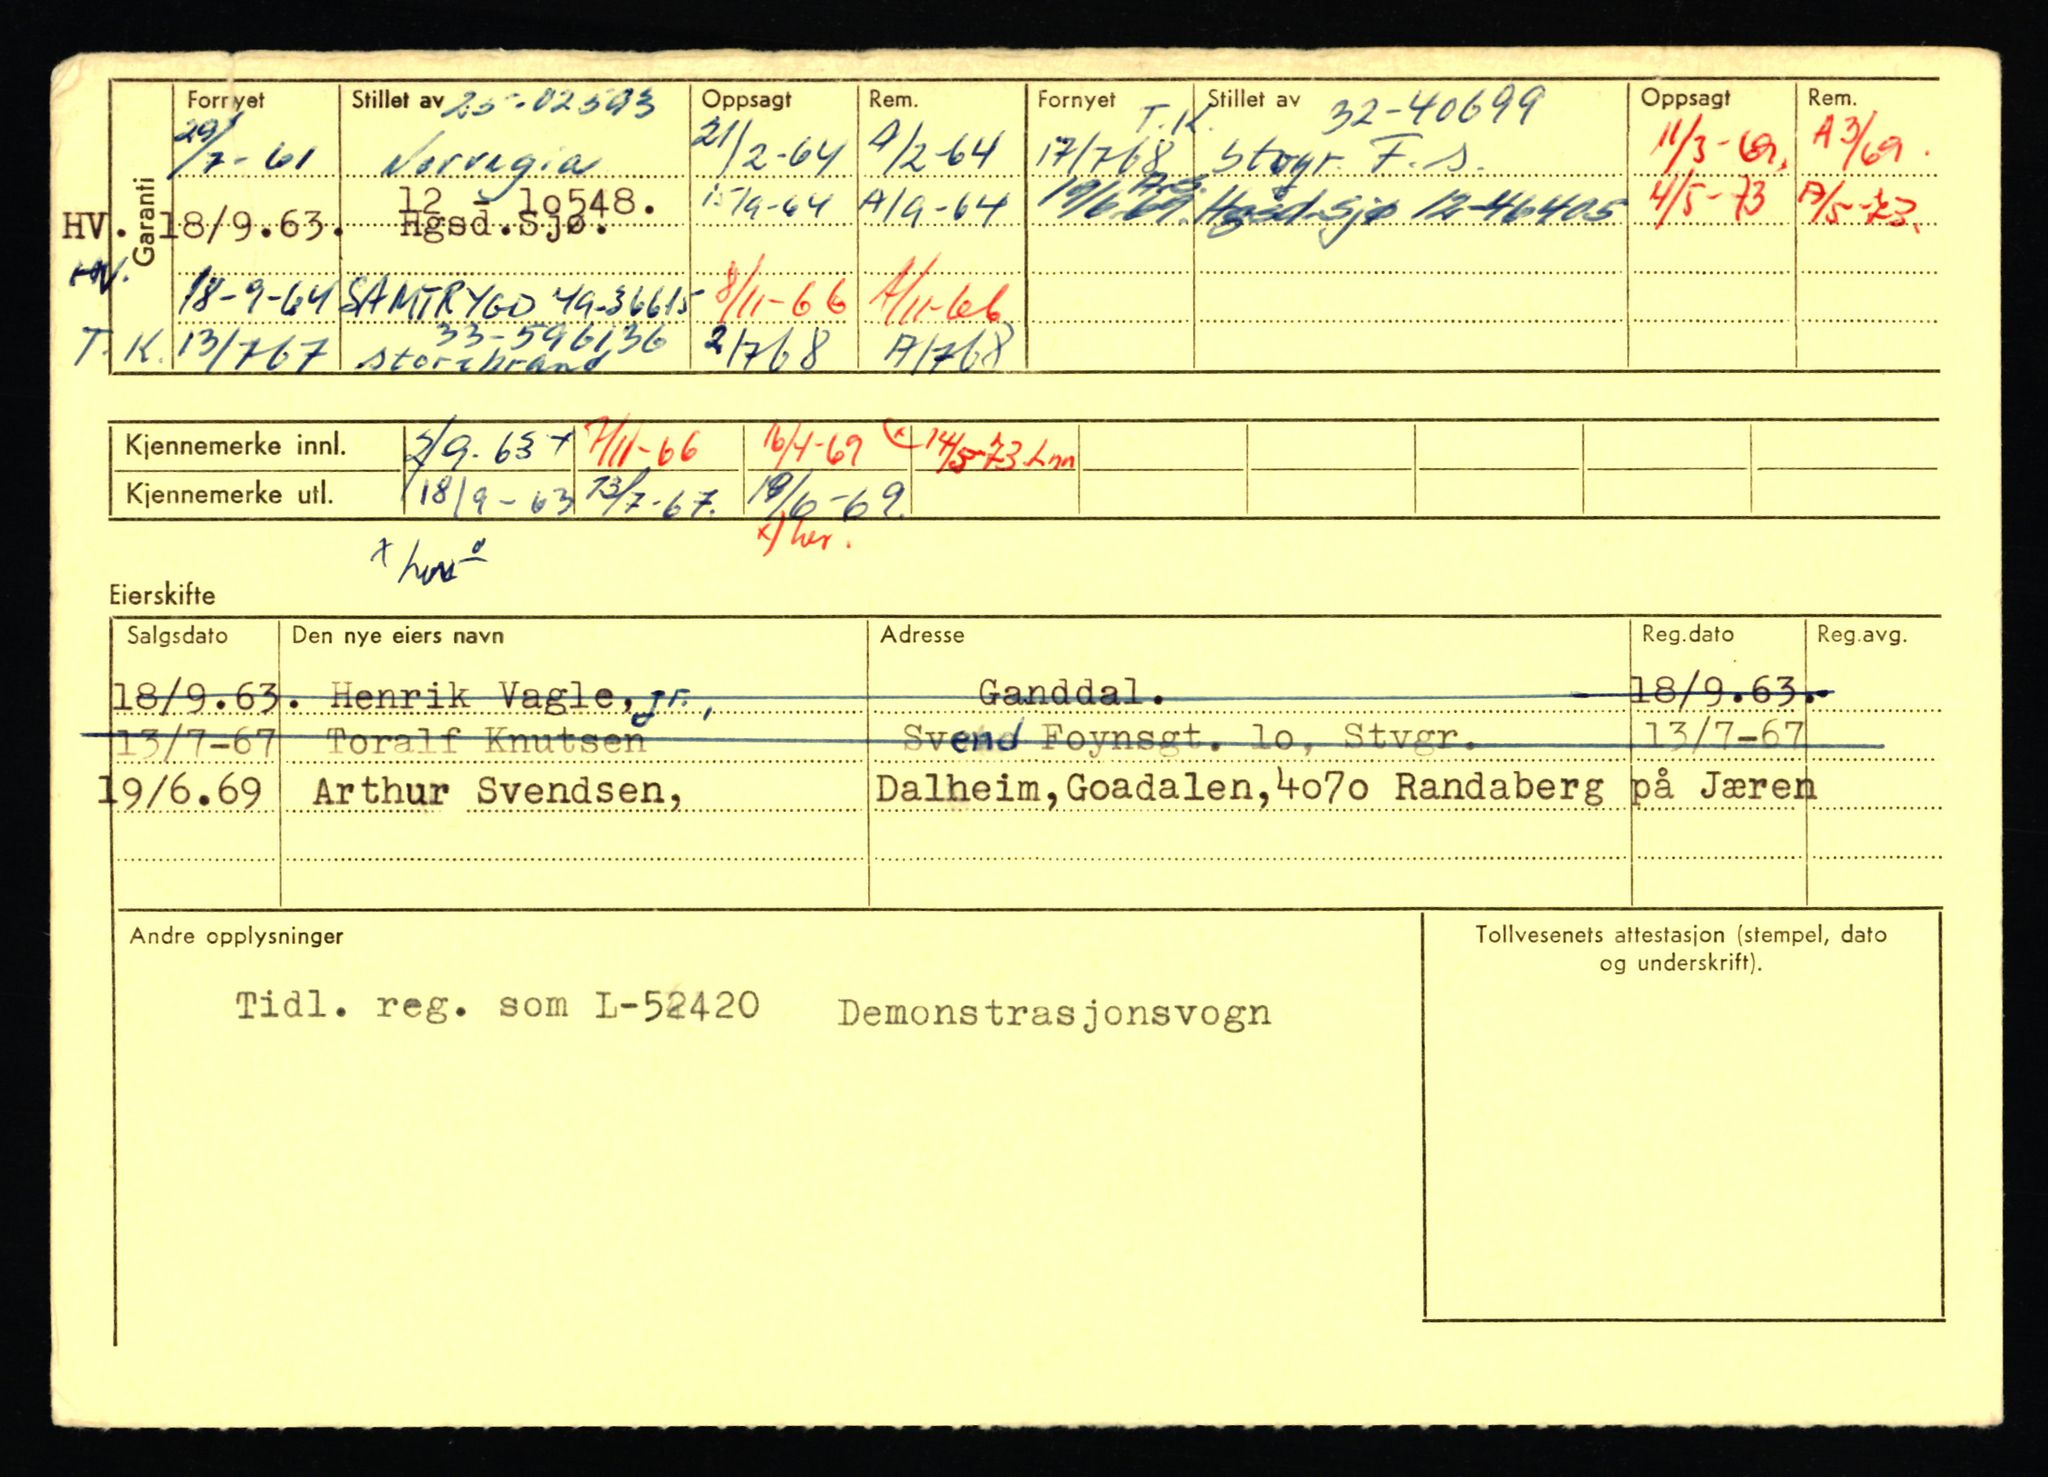 Garanti
Fornyet Stillet av 25-02593 Oppsagt Rem. Fornyet T.K. Stillet av 32-40699 Oppsagt Rem.
29/7-61 Norvegia 21/2-64 A/2-64 17/768 Stvgr. F.s. 11/3-69. A3/69.
12 - lo548.
HV. 18/9.63. Hgsd.Sjø. 15/9-64 A/9-64 A.S. 19/6-69. Hgsd.Sjø 12-46405 4/5-73 A/5-73.
HV. 18-9-64 SAMTRYGD 49-36615 8/11-66 A/11-66
33-596136
T.K. 13/767 Storebrand 2/768 A/768
Kjennemerke innl. 2/9-63 x 7/11-66 16/4-69 (x 14/5-73 Inn
Kjennemerke utl. 18/9-63 13/7-67. 19/6-69.
x) her.
Eierskifte
Salgsdato Den nye eiers navn Adresse Reg.dato Reg.avg.
18/9.63. Henrik Vagle, jr., Ganddal. 18/9.63.
13/7-67 Toralf Knutsen Svend Foynsgt. lo, Stvgr. 13/7-67
19/6.69 Arthur Svendsen, Dalheim,Goadalen,4o7o Randaberg på Jæren
Andre opplysninger
Tollvesenets attestasjon (stempel, dato
og underskrift).
Tidl. reg. som L-52420 Demonstrasjonsvogn